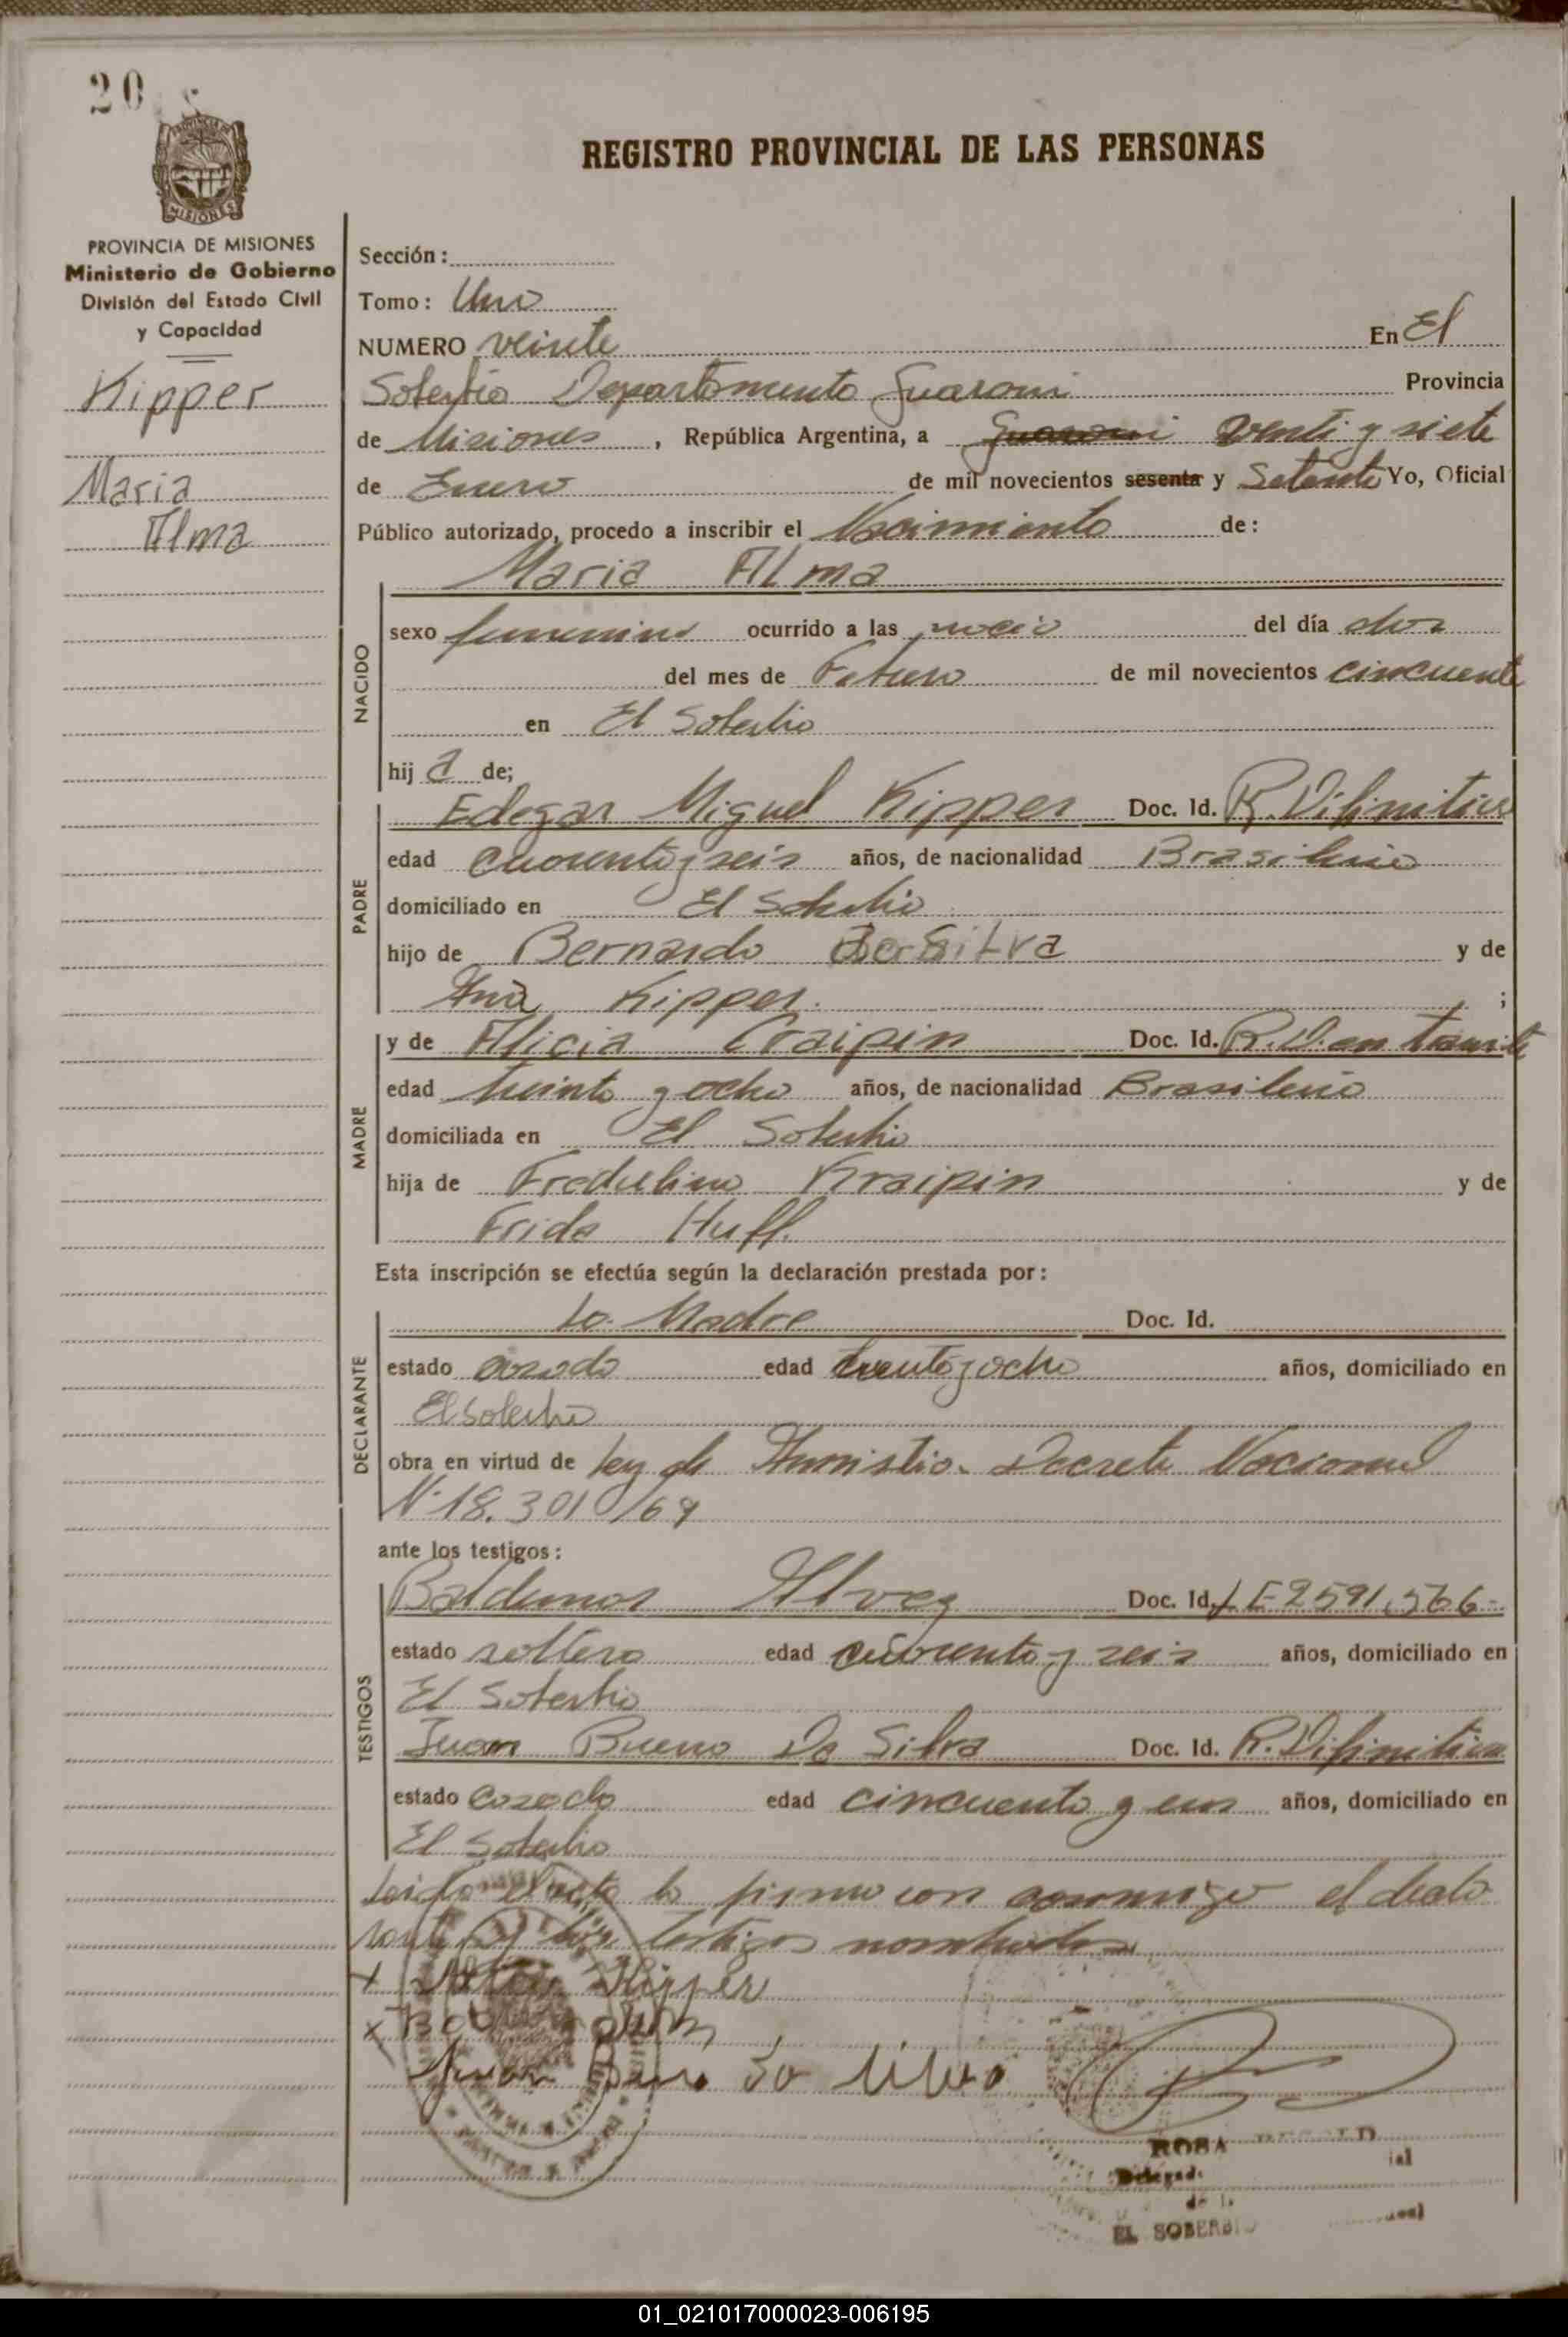 20
PROVINCIA DE MISIONES
Ministerio de Gobierno
División del Estado Civil
y Capacidad
Kipper
Maria
Alma
REGISTRO PROVINCIAL DE LAS PERSONAS
Sección:
Tomo: Uno
NUMERO veinte En El
Soberbio Departamento Guarani Provincia
de Misiones, República Argentina, a Guarani venti y siete
de Enero de mil novecientos sesenta y Setenta Yo, Oficial
Público autorizado, procedo a inscribir el Nacimiento de:
Maria Alma
NACIDO
sexo femenino ocurrido a las del día dos
del mes de Febrero de mil novecientos cincuenta
en El Soberbio
hij a de;
PADRE
Edegar Miguel Kipper Doc. Id. R. Difinitiva
edad cuarenta y seis años, de nacionalidad Brasileño
domiciliado en El Soberbio
hijo de Bernardo Da Silva y de
Ana Kipper. ;
MADRE
y de Alicia Craipin Doc. Id. R.D. en tramite
edad treinta y ocho años, de nacionalidad Brasileña
domiciliada en El Soberbio
hija de Fredulino Kraipin y de
Frida Huff.
Esta inscripción se efectúa según la declaración prestada por:
DECLARANTE
La Madre Doc. Id.
estado casada edad treinta y ocho años, domiciliado en
El Soberbio
obra en virtud de ley de Amnistia. Decreto Nacional
N° 18.301/69
ante los testigos:
TESTIGOS
Baldemar Alvez Doc. Id. LE 2591.566-
estado soltero edad cuarenta y seis años, domiciliado en
El Soberbio
Juan Bueno Da Silva Doc. Id. R. Difinitiva
estado casado edad cincuenta y un años, domiciliado en
El Soberbio
Leida el acta la firma con conmigo el decla
rante y los testigos nombrados
x Kipper
x
Juan
ROSA
Delegad
de la
EL SOBERBIO
01_021017000023-006195